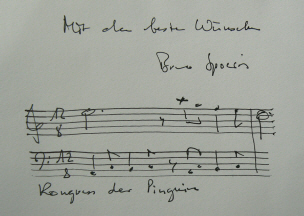 Mit den besten Wünschen
Bruno Spoerri
12
8
12
8
Kongress der Pinguine